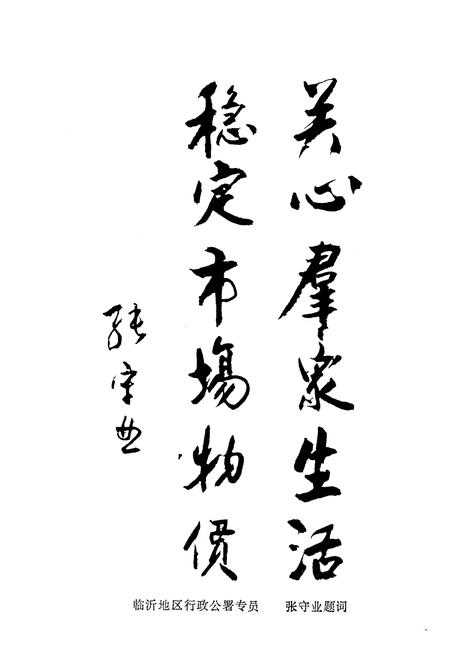 关心羣众生活
稳定市場物價
张守业
临沂地区行政公署专员 张守业题词